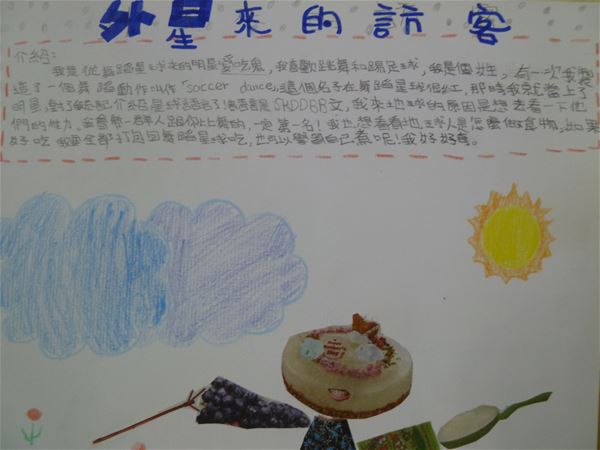 外星來的訪客
介紹:
我是從舞蹈星球來的明星愛吃鬼,我喜歡跳舞和踢足球,我是個 性,有一次我製
造了一個舞蹈動作叫作「soccer dance」這個名字在舞蹈星球很紅,那時我就當上了
明星,對了忘記介紹星球語言了!語言是 文,我來地球的原因是想去看一下他
們的性力。我會帶一群人跟你比舞的,一定第一名!我也想看看地球人是怎麼做食物,如果
好吃 我要全部打包回舞蹈星球吃,也可以學習自己煮呢!我好好奇。